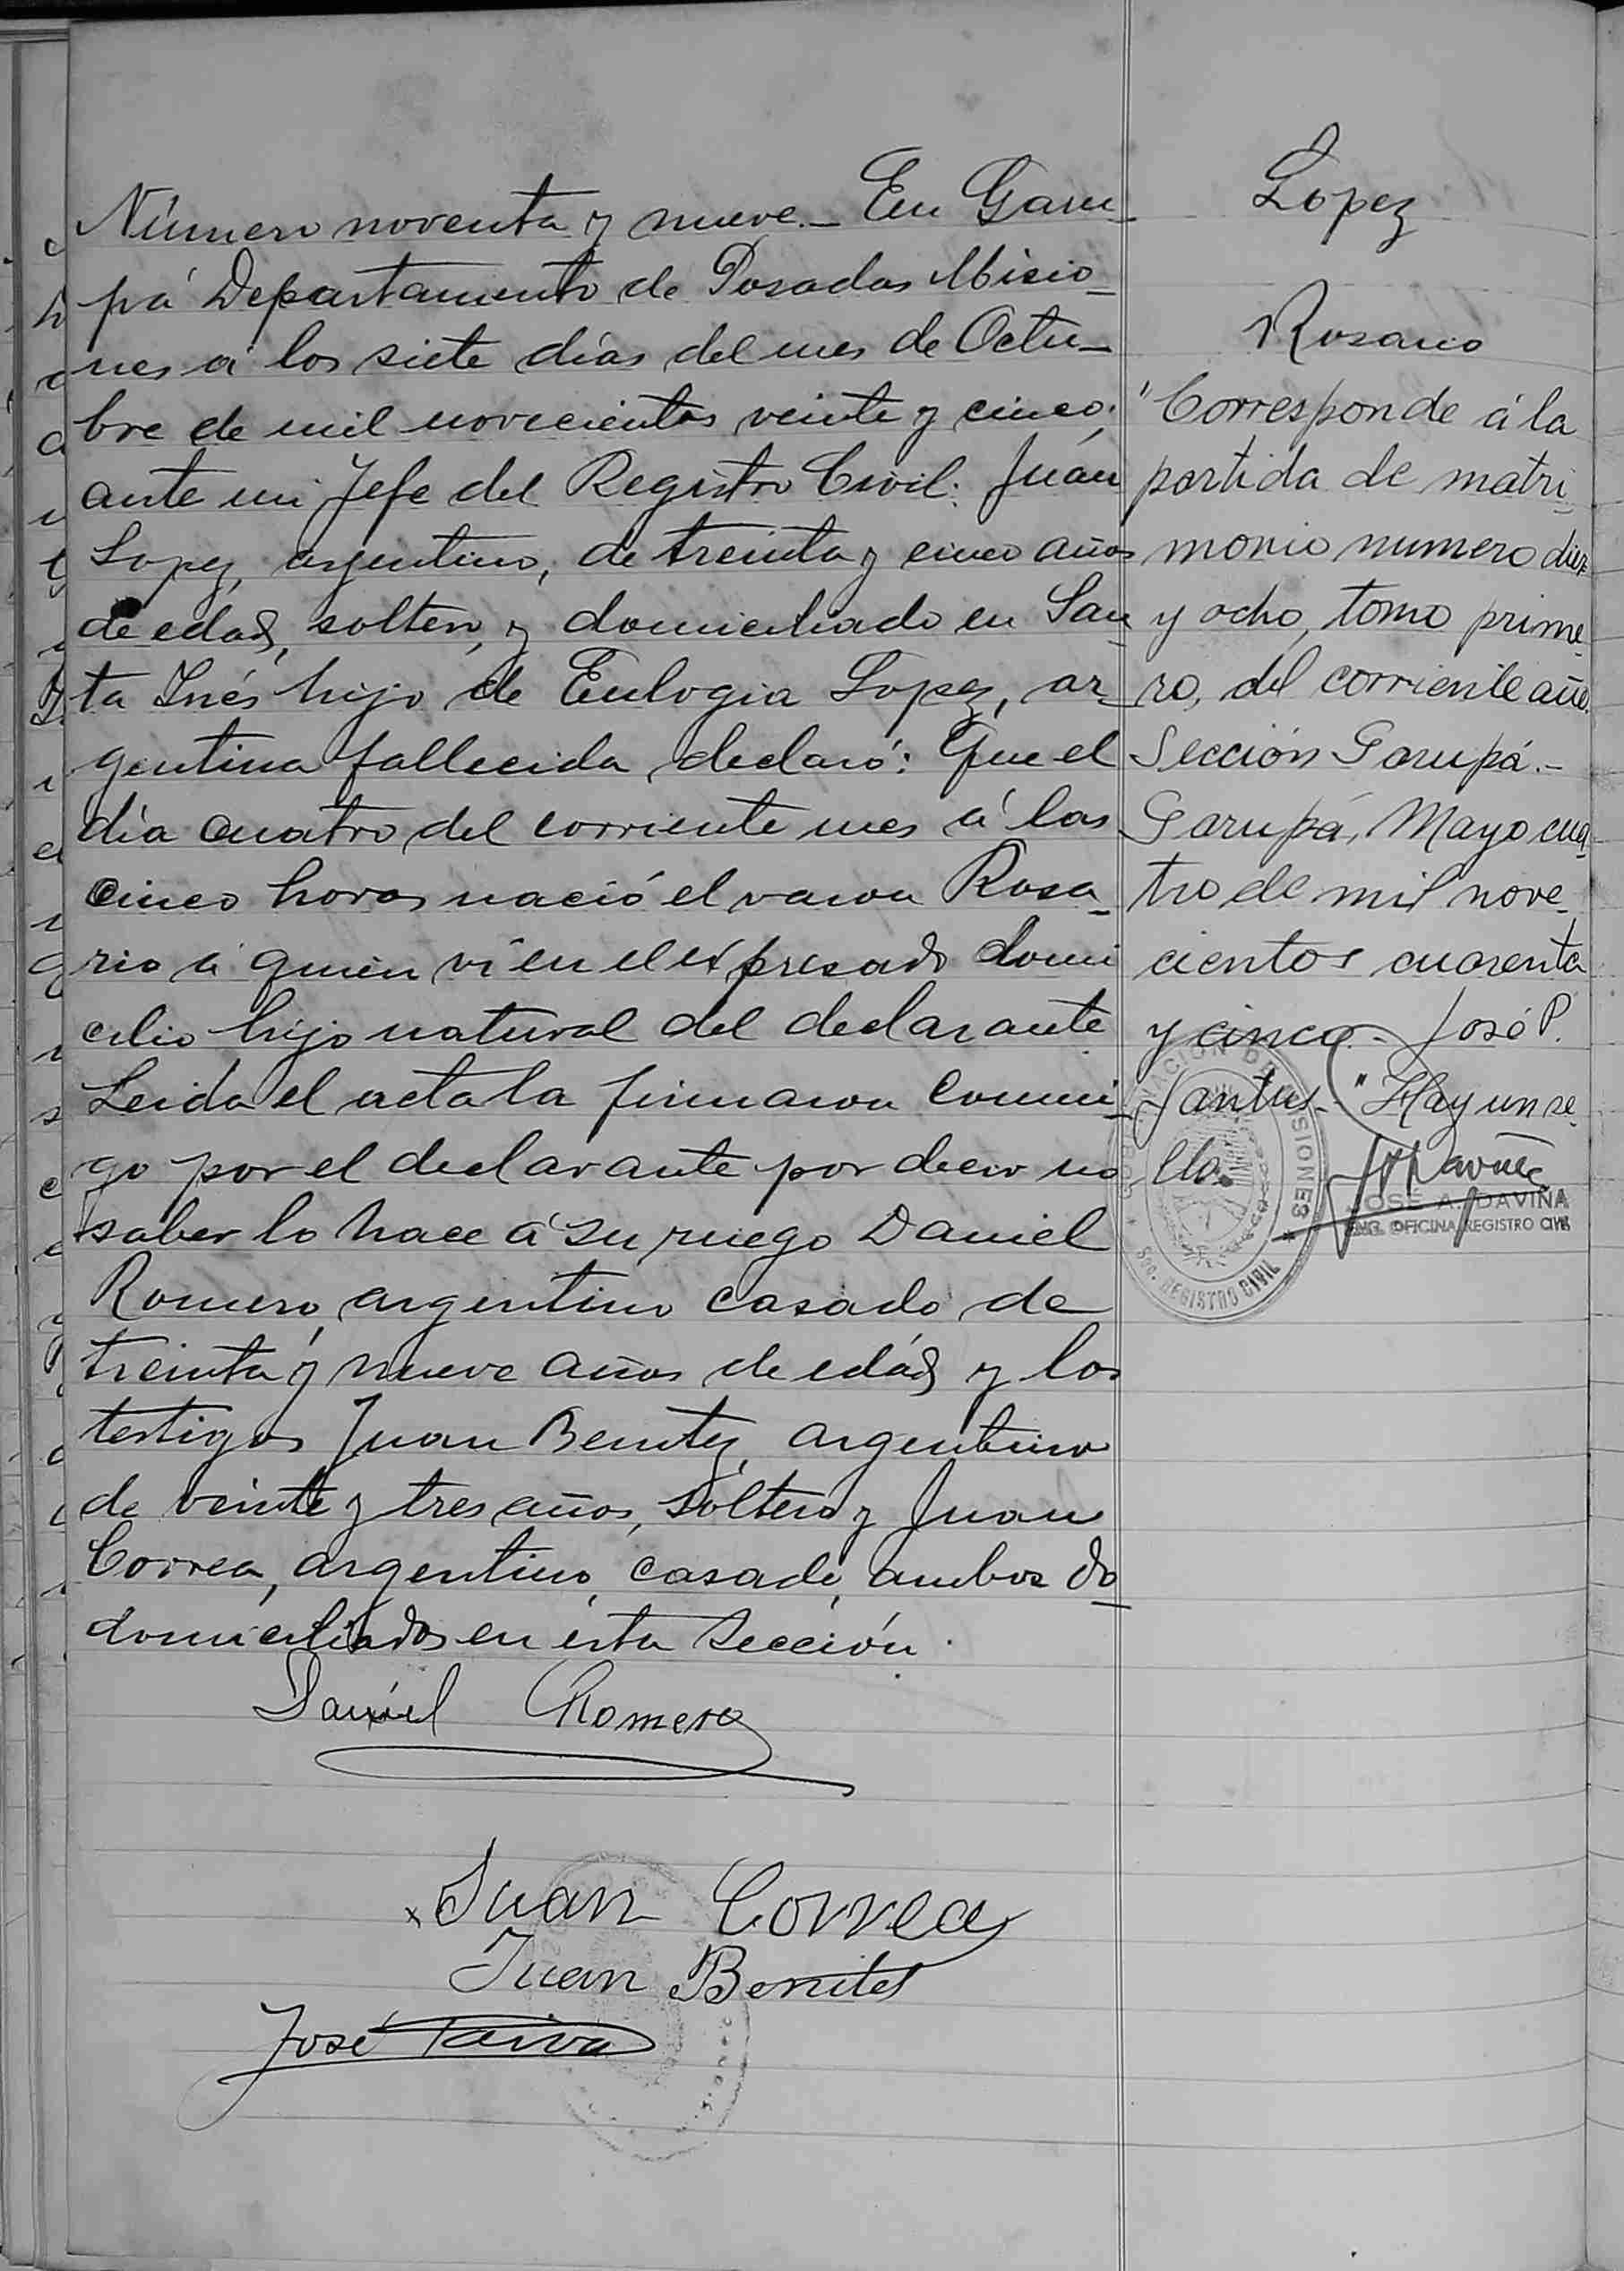 Número noventa y nueve.- En Garu-
pá Departamento de Posadas Misio-
nes á los siete días del mes de Octu-
bre de mil novecientos veinte y cinco;
ante mi Jefe del Registro Civil: Juan
Lopez, argentino, de treinta y cinco años
de edad, soltero, y domiciliado en San-
ta Inés hijo de Eulogia Lopez, ar-
gentina fallecida, declaró: Que el
día cuatro del corriente mes á las
cinco horas nació el varon Rosa-
rio á quien ví en el expresado domi
cilio hijo natural del declarante
Leida el acta la firmaron conmi-
go por el declarante por decir no
saber lo hace á su ruego Daniel
Romero, argentino casado de
treinta y nueve años de edad y los
testigos Juan Benitez, argentino
de veinte y tres años, soltero y Juan
Correa, argentino, casado, ambos do-
domiciliados en ésta Sección.
Daniel Romero
Juan Correa
Juan Benites
José Paiva
Lopez
Rosario
"Corresponde á la
partida de matri-
monio numero diez
y ocho, tomo prime-
ro, del corriente año.
Sección Garupá.-
Garupá, Mayo cua-
tro de mil nove-
cientos cuarenta
y cinco.- José P.
Santus.-" Hay un se-
llo.
GOBERNACION DE MISIONES
Sec. REGISTRO CIVIL
JOSÉ A. DAVIÑA
ENC. OFICINA REGISTRO CIVIL